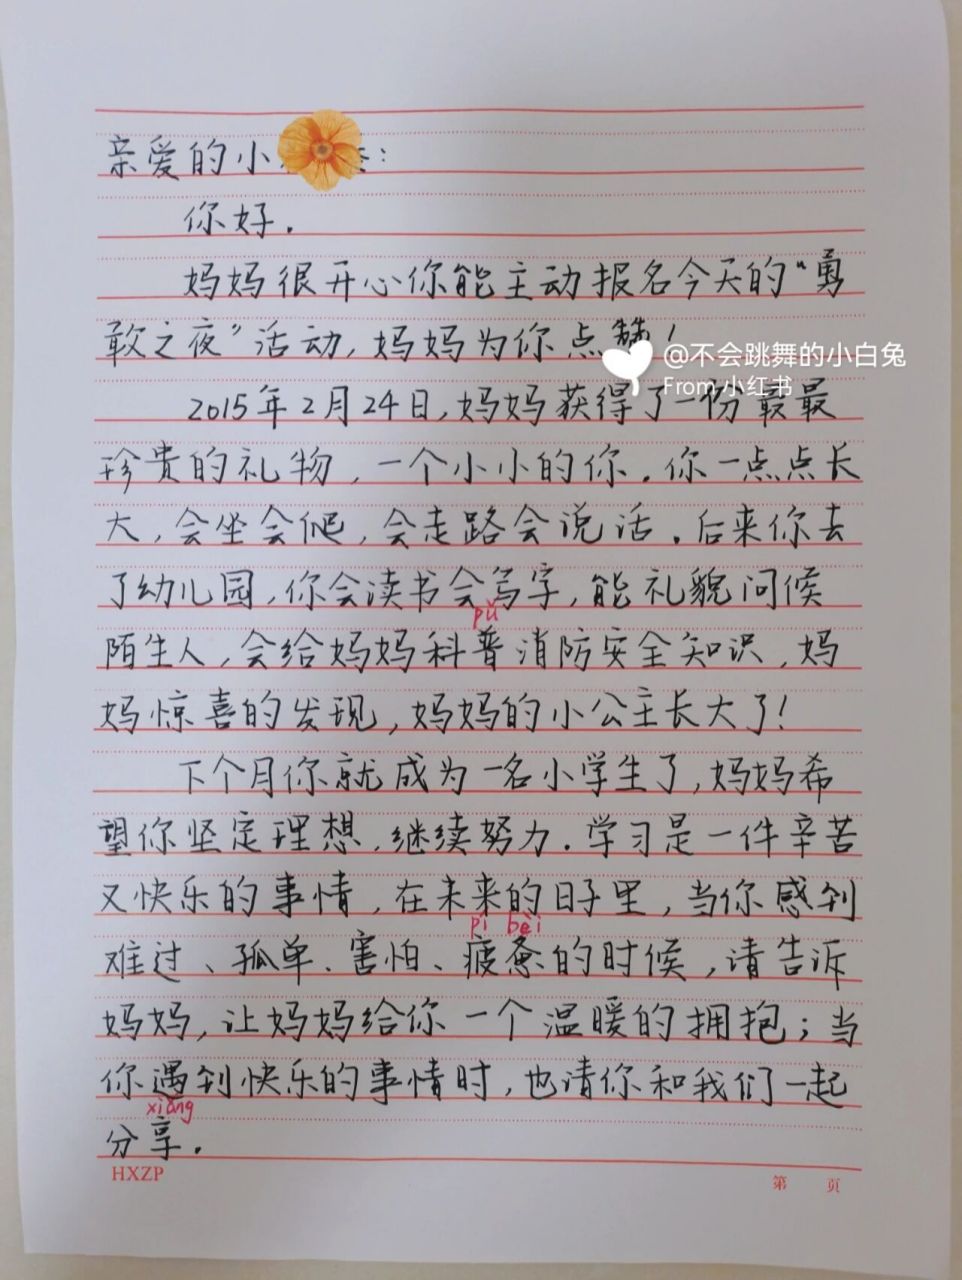 亲爱的小:
你好.
妈妈很开心你能主动报名今天的“勇
敢之夜”活动,妈妈为你点赞!
@不会跳舞的小白兔
From 小红书
2015年2月24日,妈妈获得了一份最最
珍贵的礼物,一个小小的你.你一点点长
大,会坐会爬,会走路会说话.后来你去
了幼儿园,你会读书会写字,能礼貌问候
pǔ
陌生人,会给妈妈科普消防安全知识,妈
妈惊喜的发现,妈妈的小公主长大了!
下个月你就成为一名小学生了,妈妈希
望你坚定理想,继续努力.学习是一件辛苦
又快乐的事情,在未来的日子里,当你感到
pí bèi
难过、孤单、害怕、疲惫的时候,请告诉
妈妈,让妈妈给你一个温暖的拥抱;当
你遇到快乐的事情时,也请你和我们一起
xiǎng
分享.
HXZP
第 页